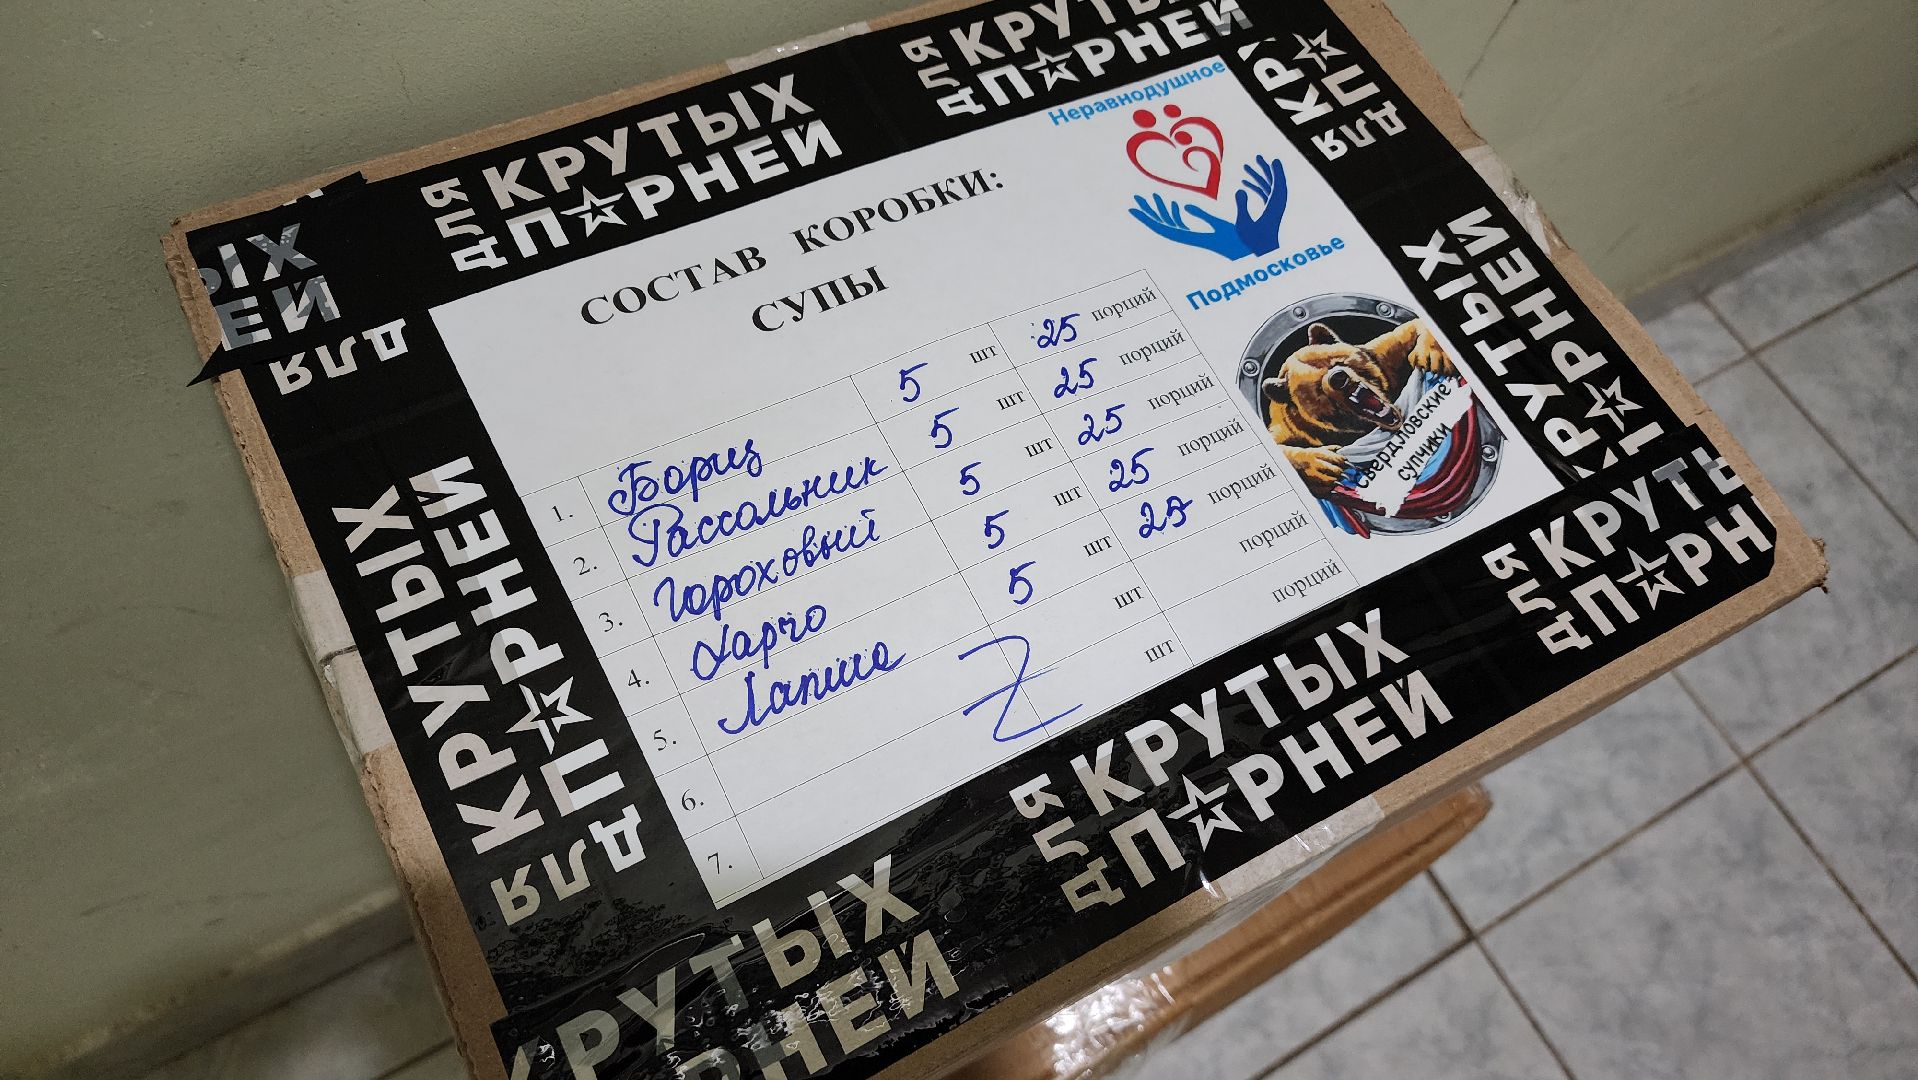 ДЛЯ КРУТЫХ
ПАРНЕЙ
ДЛЯ КРУТЫХ
ПАРНЕЙ
Неравнодушное
Подмосковье
СОСТАВ КОРОБКИ:
СУПЫ
1. Борщ 5 шт 25 порций
2. Рассольник 5 шт 25 порций
3. Гороховый 5 шт 25 порций
4. Харчо 5 шт 25 порций
5. Лапша 5 шт 25 порций
6. шт порций
7. шт порций
Свердловские
супчики
ДЛЯ КРУТЫХ
ПАРНЕЙ
КРУТЫХ
ПАРНЕЙ
ДЛЯ КРУТЫХ
ПАРНЕЙ
ДЛЯ КРУТЫ
ПАРН
КРУТЫХ
РНЕЙ